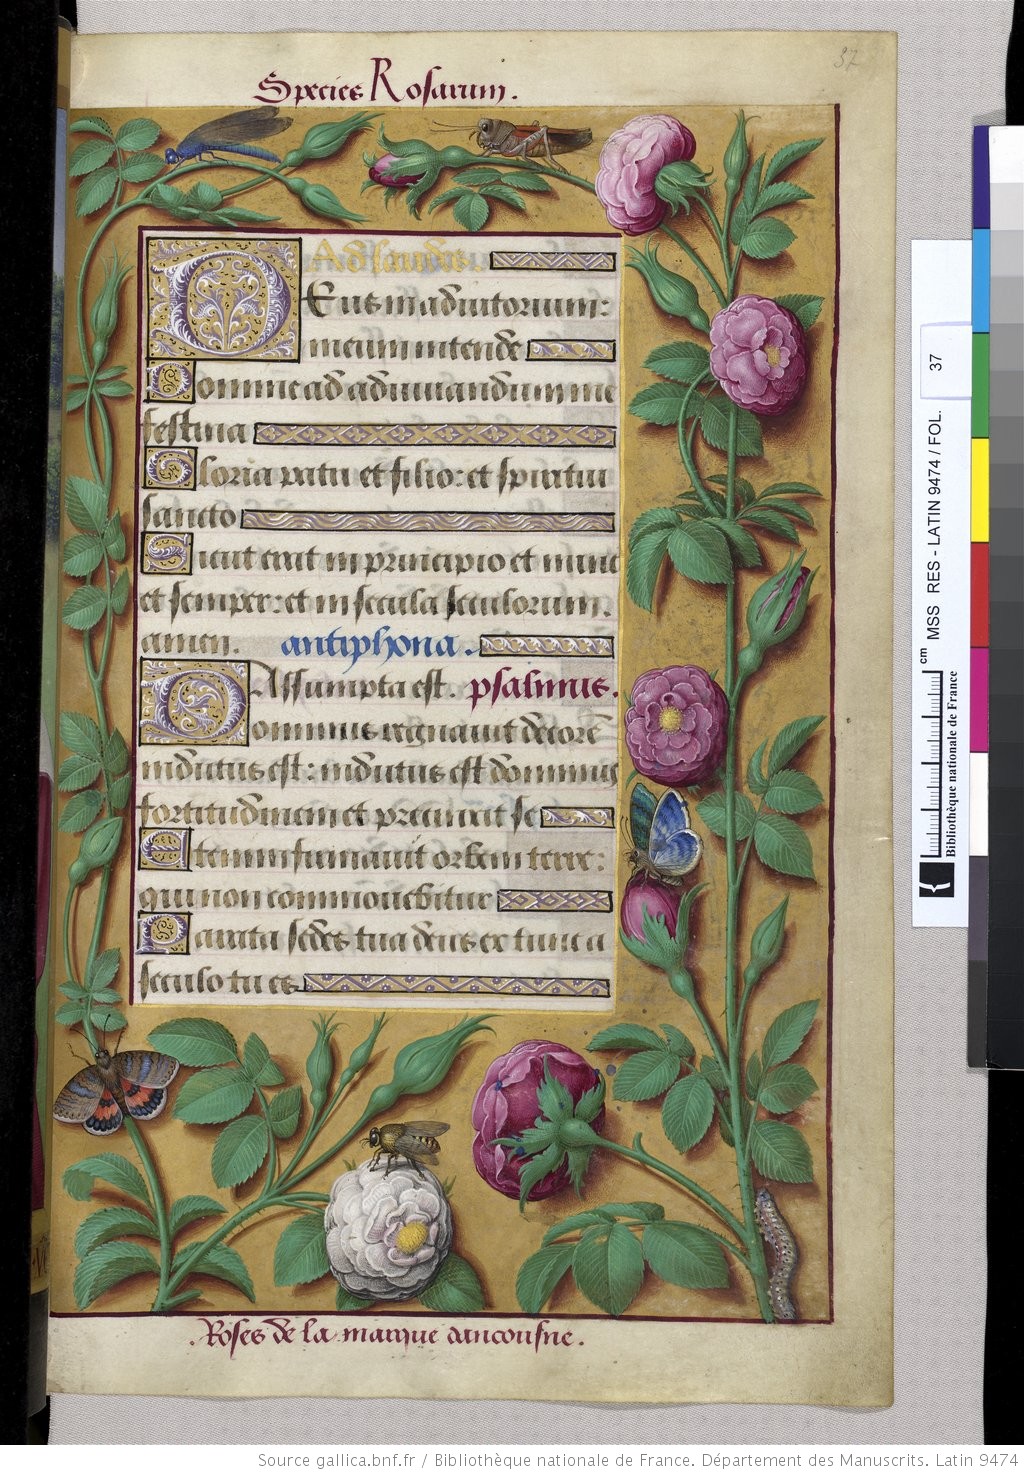 37
Species Rosarum.
Ad laudes.
Deus in adiutorium:
meum intende
Domine ad adiuuandum me
festina
Gloria patri et filio: et spiritui
sancto
Sicut erat in principio et nunc
et semper: et in secula seculorum.
amen. antiphona.
Assumpta est. psalmus.
Dominus regnauit decorē
indutus est: indutus est dominus
fortitudinem et precinxit se
Etenim firmauit orbem terre:
qui non commouebitur
Parata sedes tua deus ex tunc a
seculo tu es
.Roses de la marque dancousne.
MSS RES - LATIN 9474 / FOL. 37
cm
Bibliothèque nationale de France
Source gallica.bnf.fr / Bibliothèque nationale de France. Département des Manuscrits. Latin 9474